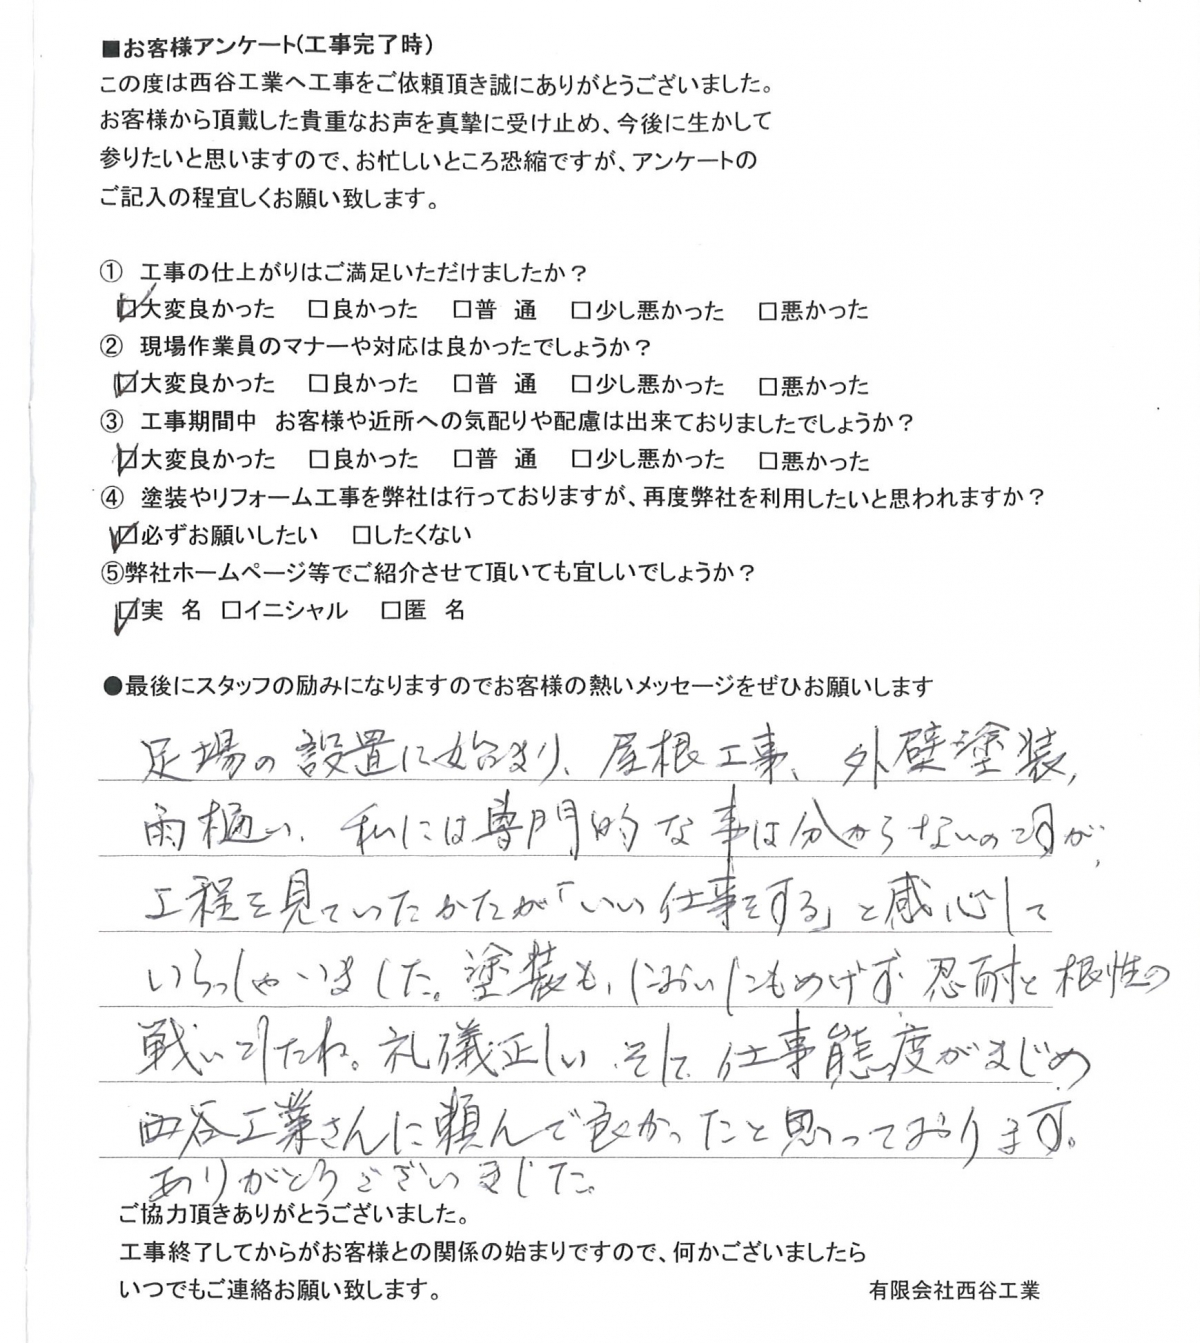 ■お客様アンケート(工事完了時)
この度は西谷工業へ工事をご依頼頂き誠にありがとうございました。
お客様から頂戴した貴重なお声を真摯に受け止め、今後に生かして
参りたいと思いますので、お忙しいところ恐縮ですが、アンケートの
ご記入の程宜しくお願い致します。
① 工事の仕上がりはご満足いただけましたか？
☑大変良かった □良かった □普 通 □少し悪かった □悪かった
② 現場作業員のマナーや対応は良かったでしょうか？
☑大変良かった □良かった □普 通 □少し悪かった □悪かった
③ 工事期間中 お客様や近所への気配りや配慮は出来ておりましたでしょうか？
☑大変良かった □良かった □普 通 □少し悪かった □悪かった
④ 塗装やリフォーム工事を弊社は行っておりますが、再度弊社を利用したいと思われますか？
☑必ずお願いしたい □したくない
⑤弊社ホームページ等でご紹介させて頂いても宜しいでしょうか？
☑実 名 □イニシャル □匿 名
●最後にスタッフの励みになりますのでお客様の熱いメッセージをぜひお願いします
足場の設置に始まり、屋根工事、外壁塗装、
雨樋い、私には専門的な事は分からないのですが、
工程を見ていたかたが「いい仕事をする」と感心して
いらっしゃいました。塗装も、においにもめげず忍耐と根性の
戦いでしたね。礼儀正しい、そして仕事態度がまじめ
西谷工業さんに頼んで良かったと思っております。
ありがとうございました。
ご協力頂きありがとうございました。
工事終了してからがお客様との関係の始まりですので、何かございましたら
いつでもご連絡お願い致します。
有限会社西谷工業